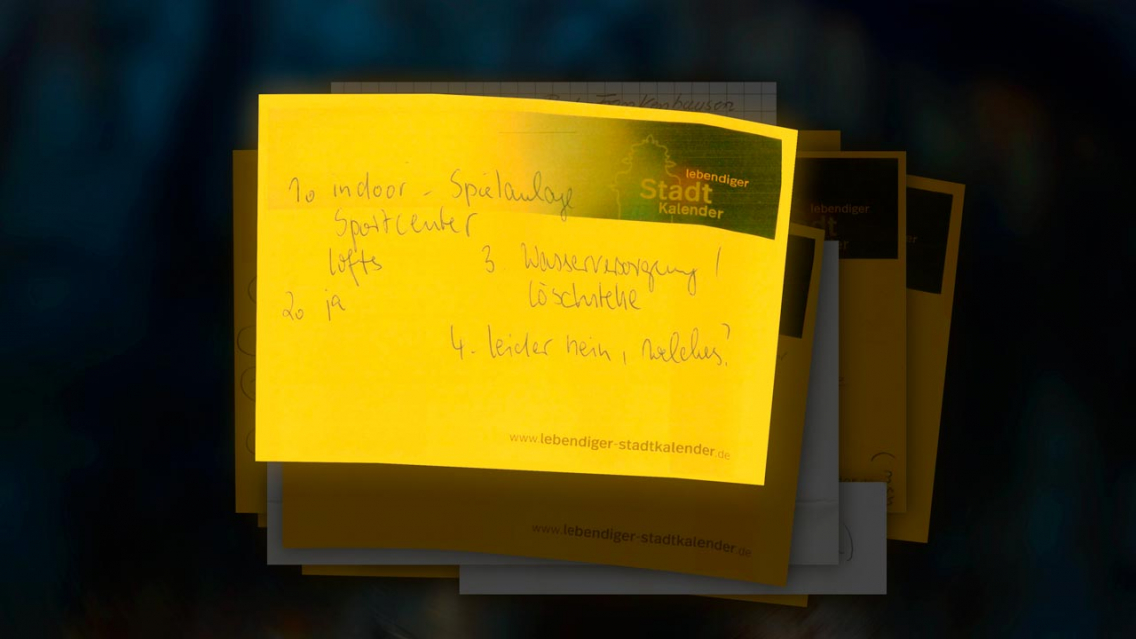 Bad Frankenhausen
lebendiger
Stadt
Kalender
1. indoor - Spielanlage
Sportcenter
lofts
2. ja
3. Wasserversorgung /
Löschstelle
4. leider nein, welches?
www.lebendiger-stadtkalender.de
lebendiger
www.lebendiger-stadtkalender.de